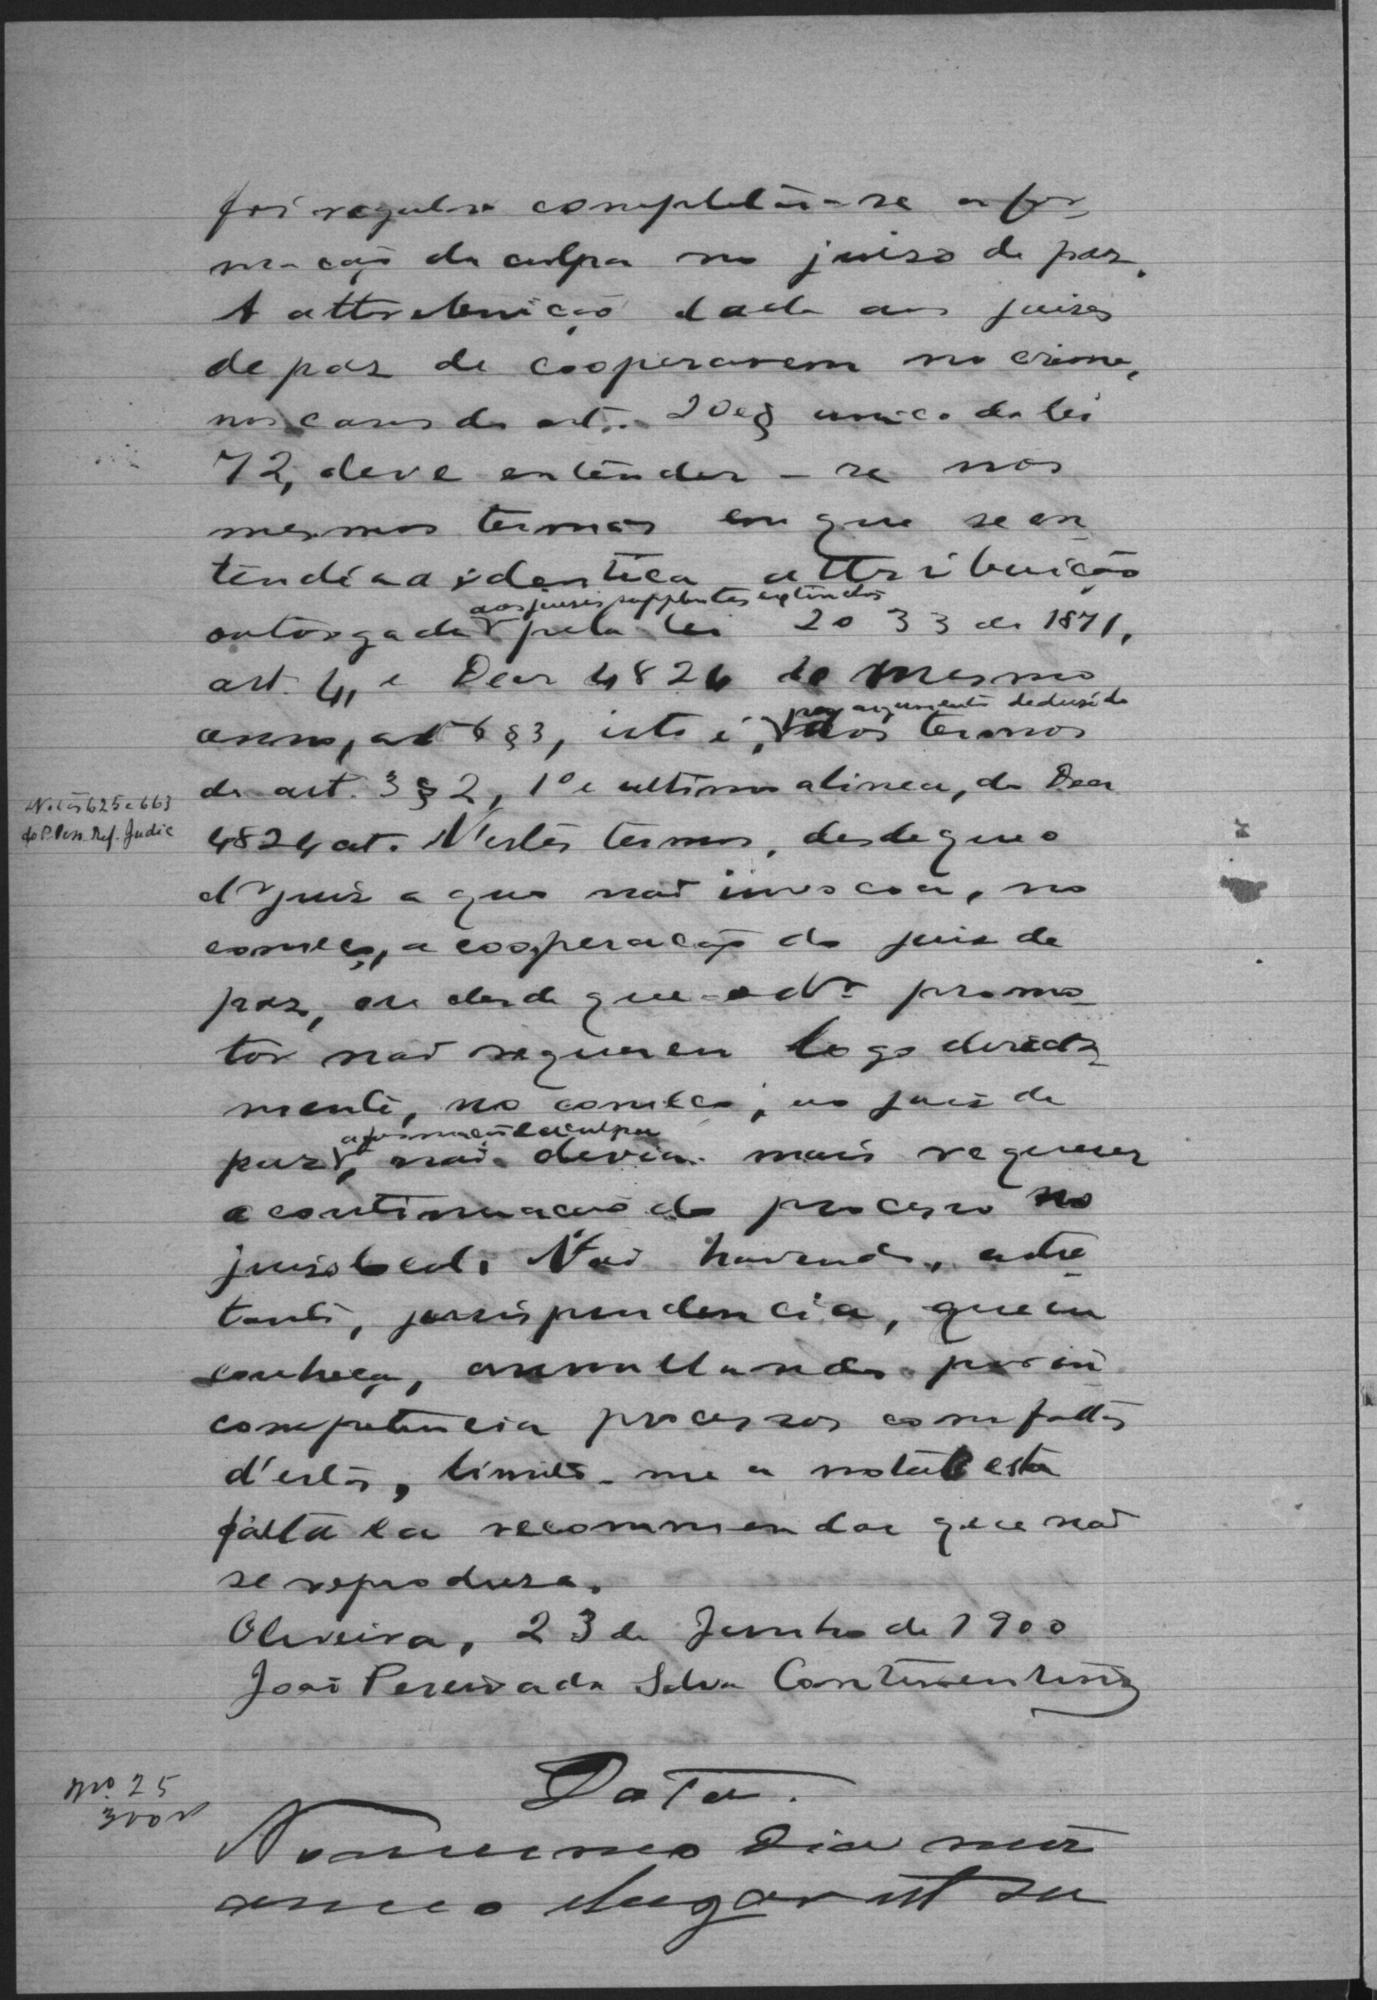 foi regular completar-se a for
mação da culpa no juiso de paz.
A attrebuição dada aos juises
de paz de cooperarem no crime,
nos casos do art. 20 e § unico da lei
72, deve entender-se nos
mesmos termos em que se en
tendia a identica attribuição
aos juises supplentes extinctos
outorgada pela lei 2033 de 1871,
art. 4, e Decr 4824 do mesmo
por argumento dedusido
anno, art 6 § 3, isto é, dos termos
do art. 3 § 2, 1º e ultimo alinea, do Decr
Notas 625 e 663
do P. Pess. Ref. Judic
4824 cit. N'estes termos, desde que o
dr juiz a quo não invocou, no
começo, a cooperação do juiz de
paz, ou desde que o dr promo
tor não requereu logo directa
mente, no começo, ao juiz de
a formação da culpa
paz, não devia mais requerer
a continuação do processo no
juiso local. Não havendo, entre
tanto, jurisprudencia, que eu
conheça, annullando por in
competencia processos com faltas
d'estas, limito-me a notar esta
falta e a recommendar que não
se reprodusa.
Oliveira, 23 de Junho de 1900
João Pereira da Silva Continentino
Data.
Nº. 25
300r
No mesmo dia mez
anno e lugar